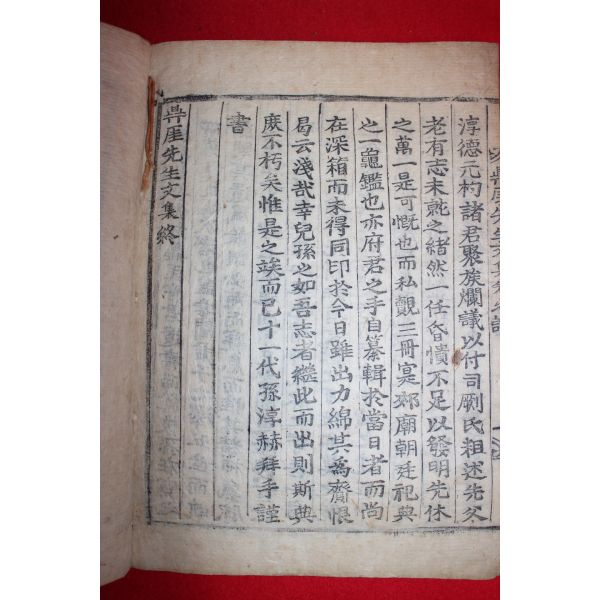 淳德元杓諸君聚族爛議以付司劂氏粗述先父
老有志未就之緒然一任昏憒不足以發明先休
之萬一是可慨也而私觀三冊寔郊廟朝廷祀典
之一龜鑑也亦府君之手自纂輯於當日者而尚
在深箱而未得同印於今日雖出力綿其爲齎恨
曷云淺哉幸兒孫之如吾志者繼此而出則斯典
庶不朽矣惟是之竢而已十一代孫淳赫拜手謹
書
厓先生文集終